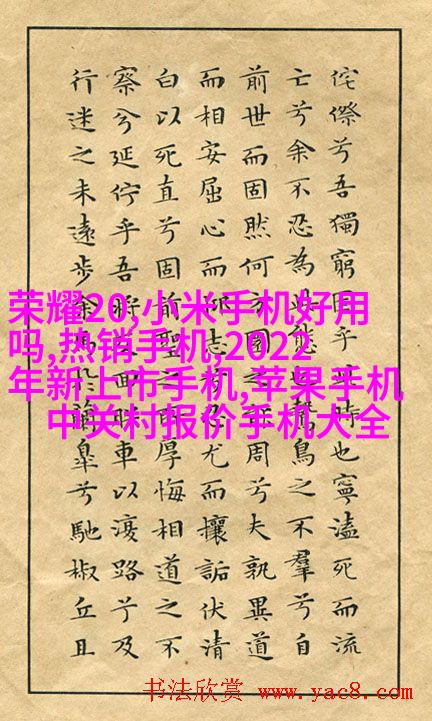 侘傺兮吾獨窮困乎此時也寧溘死而流
亡兮余不忍為此態也鷙鳥之不羣兮自
前世而固然何方圜之能周兮夫孰異道
而相安屈心而抑志兮忍尤而攘詬伏清
白以死直兮固前聖之所厚悔相道之不
察兮延佇乎吾將回朕車以復路兮及
行迷之未遠步余馬於蘭皋兮馳椒丘且
荣耀20,小米手机好用
吗,热销手机,2022
年新上市手机,苹果手机
中关村报价手机大全
书法欣赏 www.yac8.com